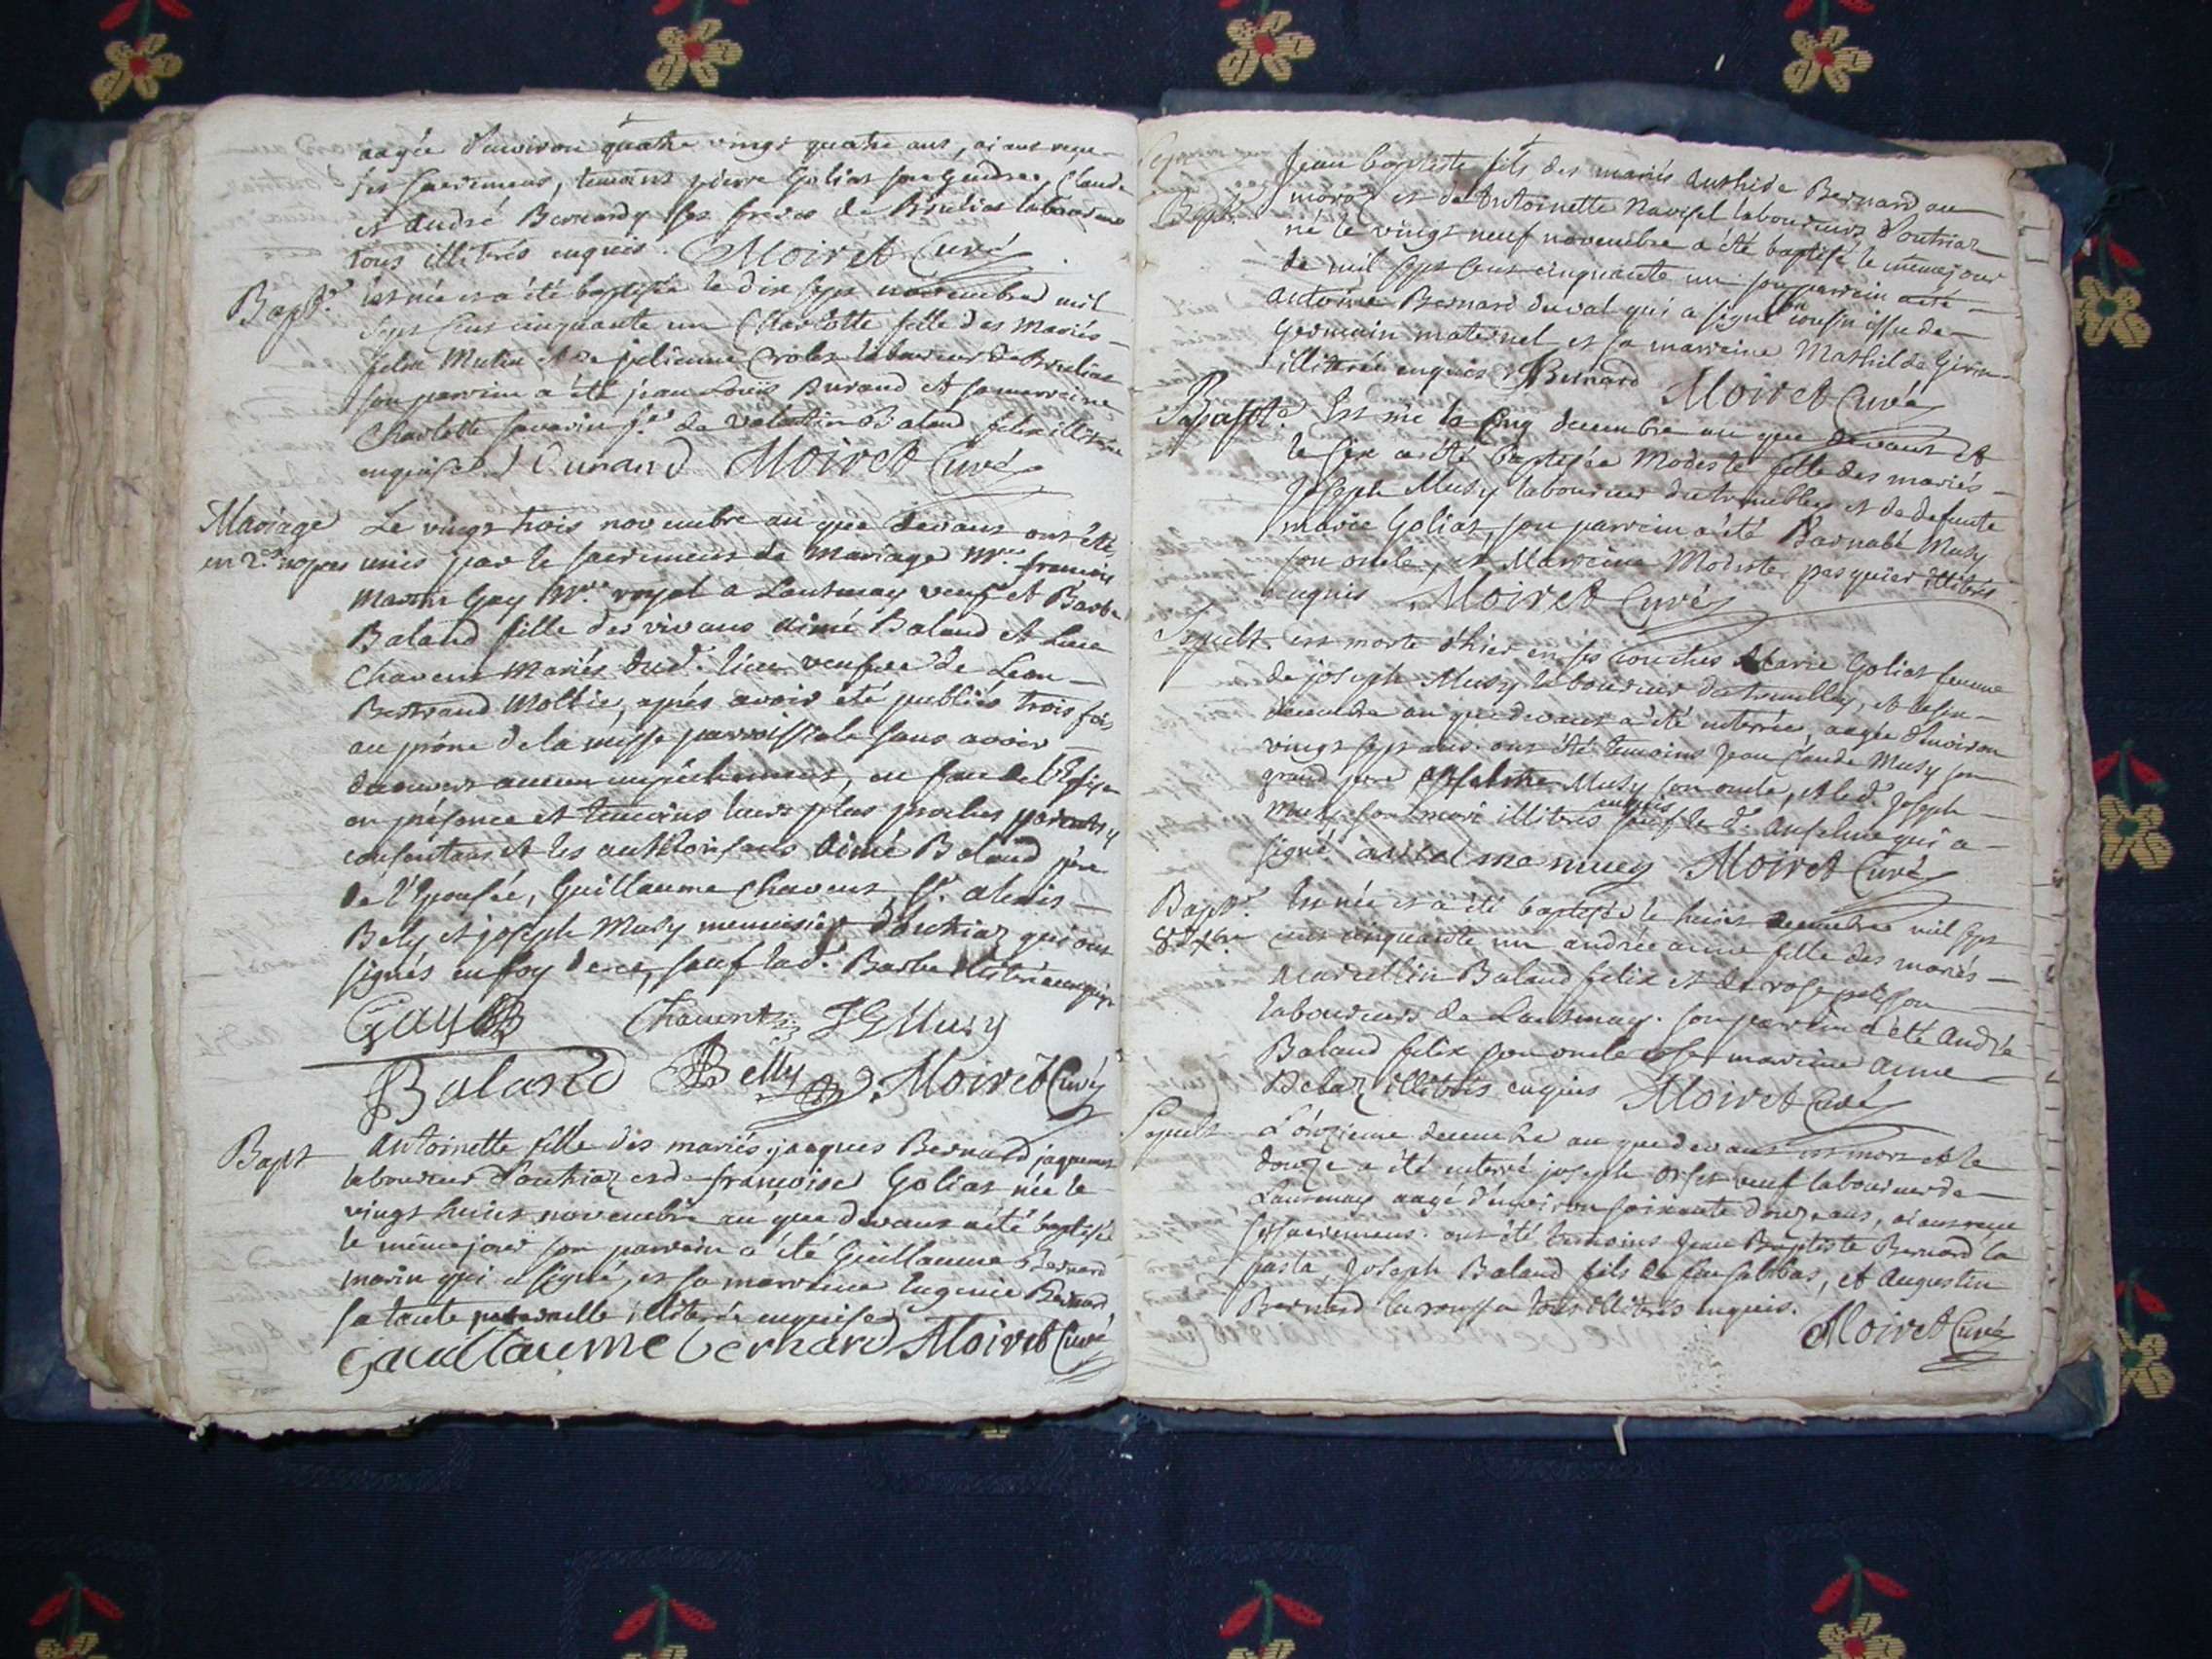 aagée d'environ quatre vingt quatre ans, aiant reçu
ses sacremens, temoins pierre Golias son gendre, Claude
et André Bernardy ses freres de Brulias laboureurs
tous illitrés enquis. Moiret Curé
Bapt.e Est née et a été baptisée le dix sept novembre mil
sept cent cinquante un Charlotte fille des mariés
felix Mulin et de julienne laboureur de Brulias
son parrein a été jean Louis Durand et sa marreine
Charlotte savarin f.e de Valentin Baland felix illitrée
enquise J Durand Moiret Curé
Mariage Le vingt trois novembre an que devant ont été
en 2.des nopces unis par le sacrement de mariage M.re françois
Martin Gay N.re royal a Lantenay veuf et Barbe
Baland fille des vivans Aimé Baland et Luce
Chavent mariés dud. lieu veufve de Leon
Bertrand Mollie, après avoir été publiés trois fois
au prône de la messe parroissiale sans avoir
decouvert aucun empêchement, en face de l'Eglise
en présence et temoins leurs plus proches parents
consentans et les authorisans Aimé Baland père
de l'épousée, Guillaume Chavent, S.r alexis
Bely et joseph Musy menuisier d'outriaz qui ont
signés en foy de ce, sauf lad. Barbe illitrée enquise
Gay Chavent JG Musy
Baland Belly Moiret Curé
Bapt Antoinette fille des mariés jacques Bernard jaquemet
laboureur d'outriaz et de françoise Golias née le
vingt huit novembre an que devant a été baptisée
le même jour son parrein a été Guillaume Bernard
marin qui a signé, et sa marreine Eugenie Bernard
sa tante paternelle illitrée enquise
Guillaume bernard Moiret Curé
Jean baptiste fils des mariés Anthide Bernard au
Bapt. moroz et de Antoinette Navisel laboureurs d'outriaz
né le vingt neuf novembre a été baptisé le même jour
de mil sept cent cinquante un son parrein a été
Antoine Bernard duval qui a signé son cousin issu de
germain maternel et sa marreine Mathilde Girin
illitrée enquis Bernard Moiret Curé
Bapt.e Est née le cinq decembre an que devant et
le six a été baptisée Modeste fille des mariés
Joseph Musy laboureur du tremblay et de defunte
marie Golias, son parrein a été Barnabé Musy
son oncle, et Marreine Modeste pasquier illitrés
enquis Moiret Curé
Sepult. est morte d'hier en ses couches Marie Golias femme
de joseph Musy laboureur du tremblay, et le six
decembre an que devant a été enterrée, aagée d'environ
vingt sept ans. ont été temoins Jean Claude Musy son
grand pere Anselme Musy son oncle, et le d. joseph
Musy son mari illitrés enquis sauf le d. Anselme qui a
signé anselme musy Moiret Curé
Bapt.e Est née et a été baptisée le huit decembre mil sept
8 Xbre cent cinquante un andrée anne fille des mariés
Marcellin Baland felix et de rose
laboureurs de Lantenay. son parrein a été André
Baland felix son oncle et sa marreine anne
Belaz illitrés enquis Moiret Curé
Sepult L'onzieme decembre an que devant est mort et le
douze a été enterré joseph Orset veuf laboureur de
Lantenay aagé d'environ soixante douze ans, aiant reçu
ses sacremens. ont été temoins Jean Baptiste Bernard la
pasta, Joseph Baland fils de feu, et Augustin
Bernard la roussa tous illitrés enquis.
Moiret Curé